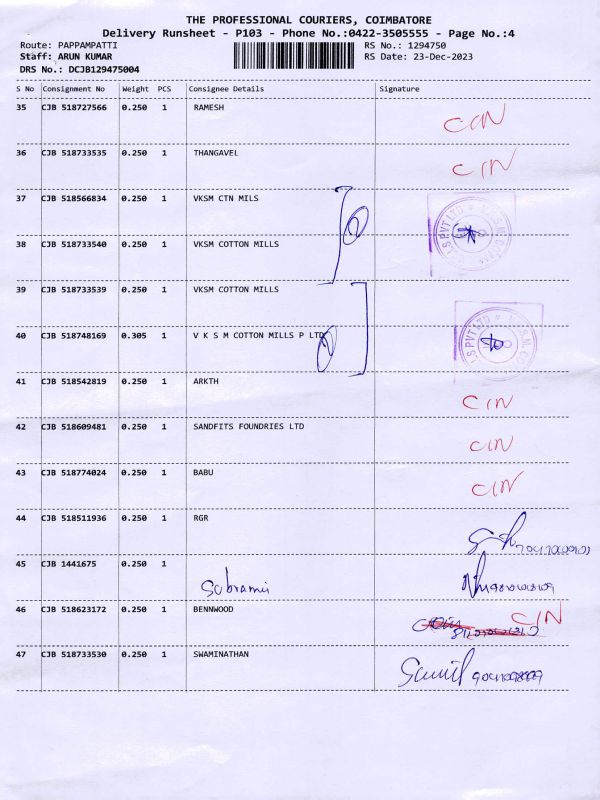 THE PROFESSIONAL COURIERS, COIMBATORE
Delivery Runsheet - P103 - Phone No.:0422-3505555 - Page No.:4
Route: PAPPAMPATTI RS No.: 1294750
Staff: ARUN KUMAR RS Date: 23-Dec-2023
DRS No.: DCJB129475004
S No Consignment No Weight PCS Consignee Details Signature
35 CJB 518727566 0.250 1 RAMESH CIN
36 CJB 518733535 0.250 1 THANGAVEL CIN
37 CJB 518566834 0.250 1 VKSM CTN MILS
38 CJB 518733540 0.250 1 VKSM COTTON MILLS
39 CJB 518733539 0.250 1 VKSM COTTON MILLS
40 CJB 518748169 0.305 1 V K S M COTTON MILLS P LTD
41 CJB 518542819 0.250 1 ARKTH CIN
42 CJB 518609481 0.250 1 SANDFITS FOUNDRIES LTD CIN
43 CJB 518774024 0.250 1 BABU CIN
44 CJB 518511936 0.250 1 RGR
45 CJB 1441675 0.250 1 Subramni
46 CJB 518623172 0.250 1 BENNWOOD CIN
47 CJB 518733530 0.250 1 SWAMINATHAN